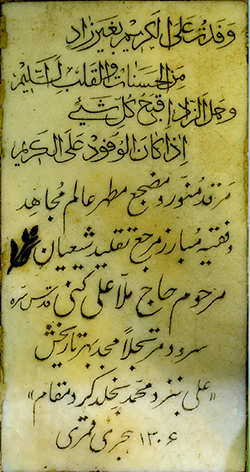 وفدت علی الکریم بغیر زاد
من الحسنات والقلب السلیم
وحمل الزاد اقبح کل شیئ
اذا کان الوفود علی الکریم
مرقد منور و مضجع مطهر عالم مجاهد
و فقیه مبارز مرجع تقلید شیعیان
مرحوم حاج ملا علی کنی قدس سره
سرود مرتجلاً مجد بهر تاریخش
«علی بنزد محمد بخلد کرد مقام»
۱۳۰۶ هجری قمری